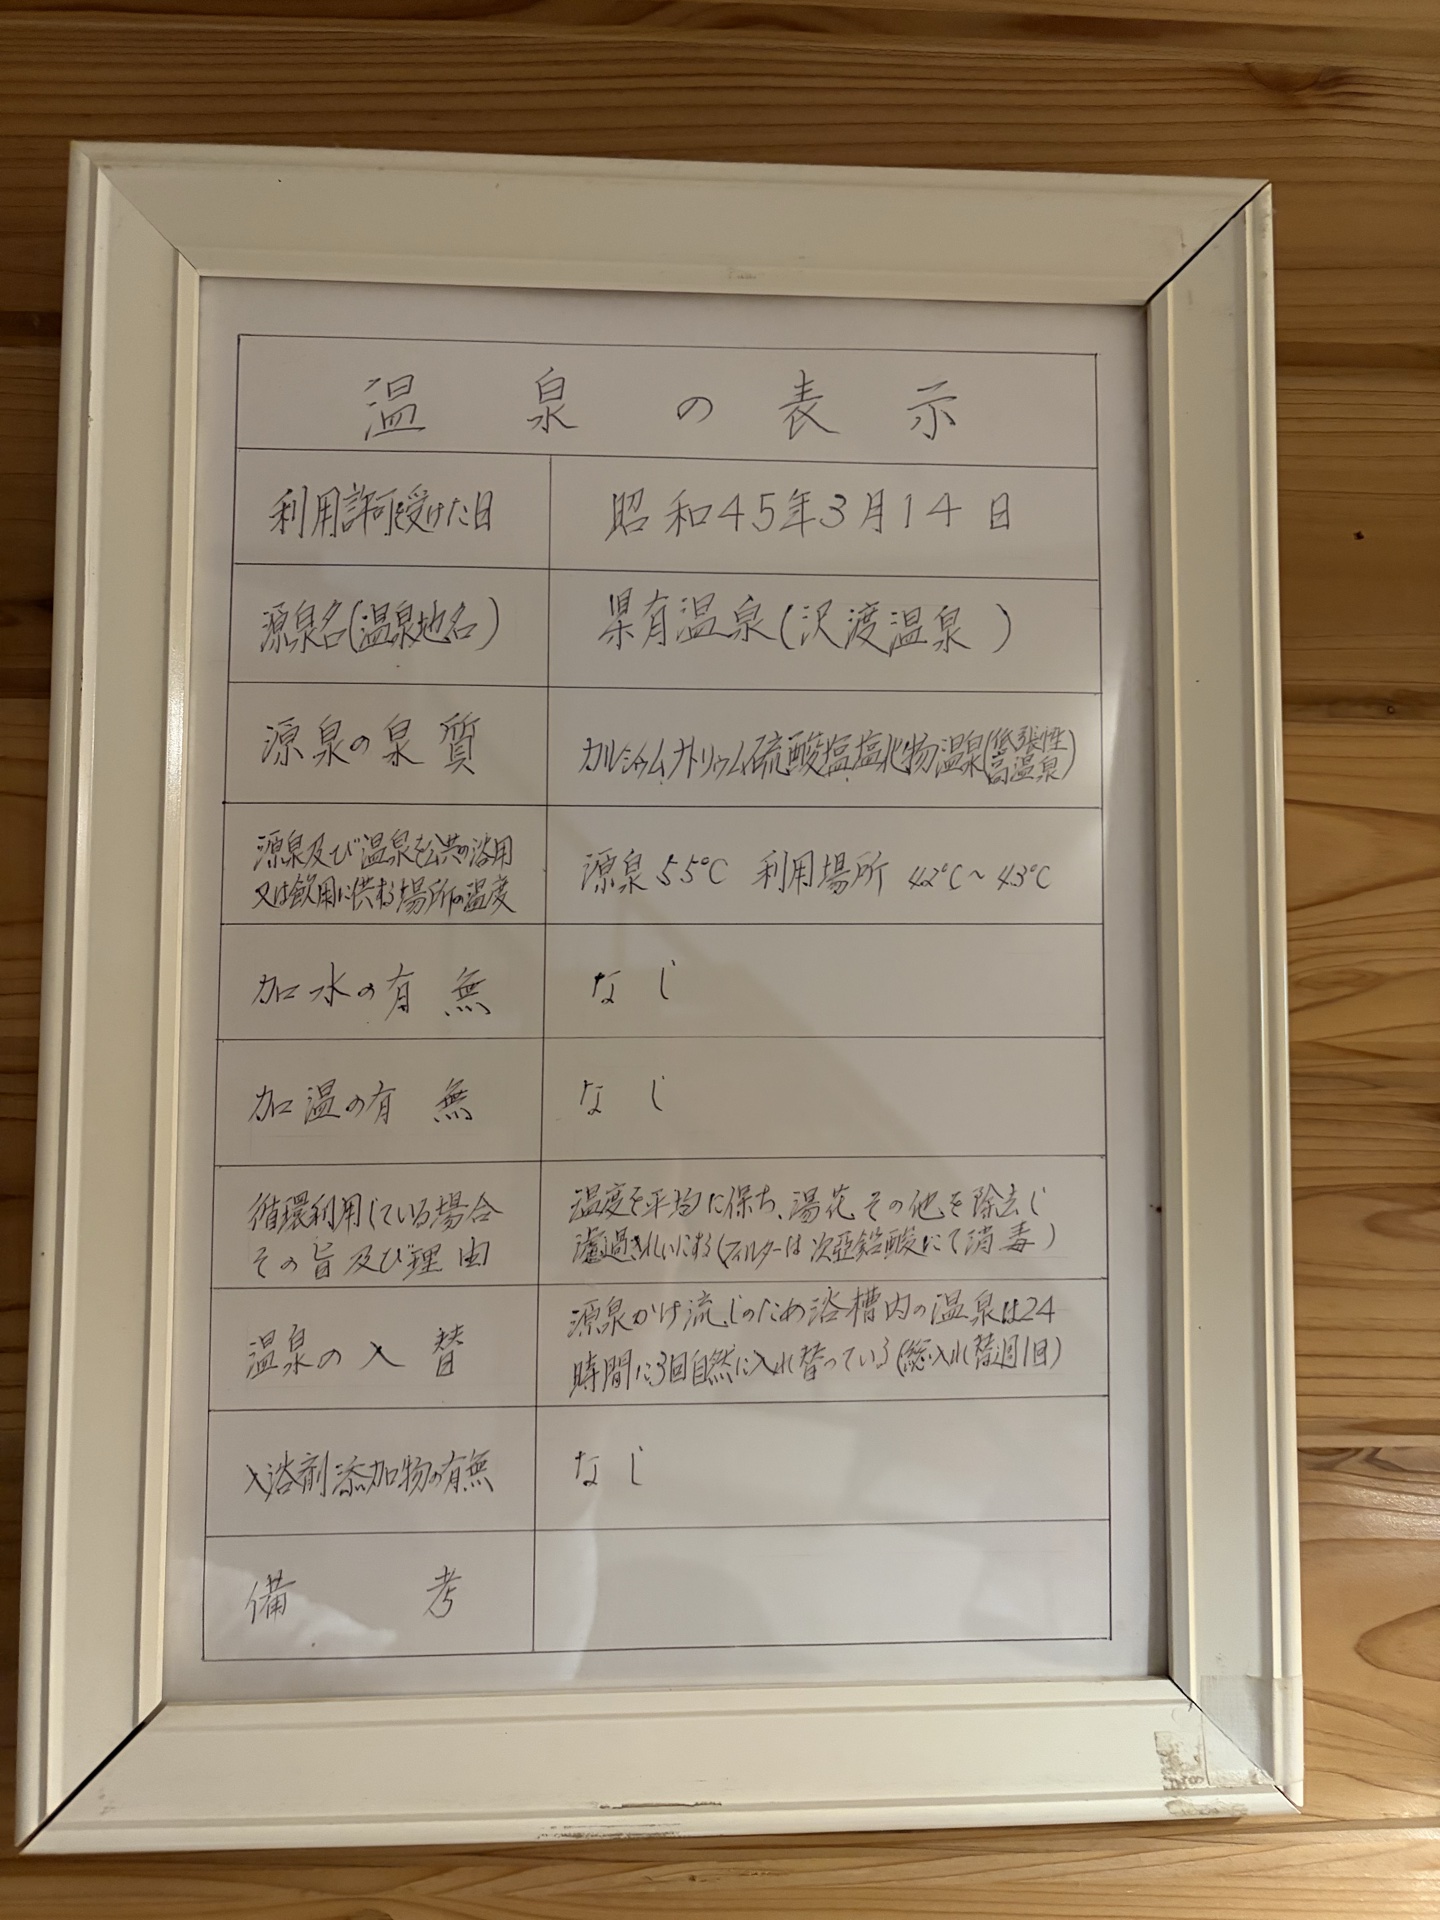 温泉の表示
利用許可を受けた日
昭和45年3月14日
源泉名(温泉地名)
県有温泉(沢渡温泉)
源泉の泉質
カルシウムナトリウム硫酸塩塩化物温泉(低張性
高温泉)
源泉及び温泉を公共の浴用
又は飲用に供する場所の温度
源泉55℃ 利用場所 42℃~43℃
加水の有無
なし
加温の有無
なし
循環利用している場合
その旨及び理由
温度を平均に保ち、湯花その他を除去し
濾過きれいにする(フィルターは次亜鉛酸にて消毒)
温泉の入替
源泉かけ流しのため浴槽内の温泉は24
時間に3回自然に入れ替っている(総入れ替週1回)
入浴剤添加物の有無
なし
備考